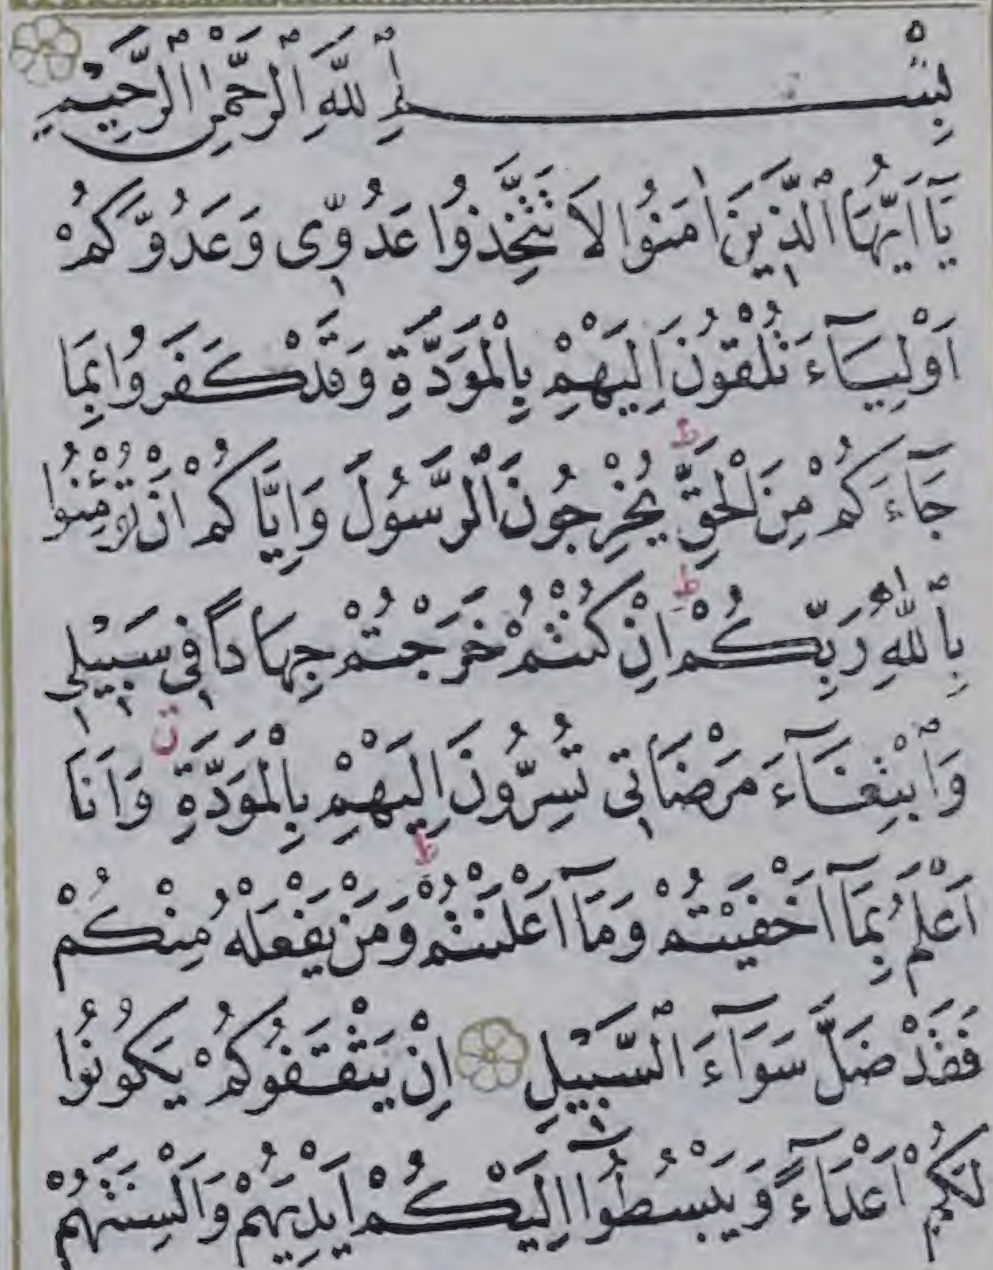 بِسْمِ اللّٰهِ الرَّحْمٰنِ الرَّحِيمِ
يَٓا اَيُّهَا الَّذ۪ينَ اٰمَنُوا لَا تَتَّخِذُوا عَدُوّ۪ى وَعَدُوَّكُمْ
اَوْلِيَٓاءَ تُلْقُونَ اِلَيْهِمْ بِالْمَوَدَّةِ وَقَدْ كَفَرُوا بِمَا
جَٓاءَكُمْ مِنَ الْحَقِّۚ ط يُخْرِجُونَ الرَّسُولَ وَاِيَّاكُمْ اَنْ تُؤْمِنُوا
بِاللّٰهِ رَبِّكُمْ ط اِنْ كُنْتُمْ خَرَجْتُمْ جِهَادًا ف۪ى سَب۪يل۪ى
وَابْتِغَٓاءَ مَرْضَات۪ى ق تُسِرُّونَ اِلَيْهِمْ بِالْمَوَدَّةِ وَاَنَا۬
اَعْلَمُ بِمَٓا اَخْفَيْتُمْ وَمَٓا اَعْلَنْتُمْ ط وَمَنْ يَفْعَلْهُ مِنْكُمْ
فَقَدْ ضَلَّ سَوَٓاءَ السَّب۪يلِ اِنْ يَثْقَفُوكُمْ يَكُونُوا
لَكُمْ اَعْدَٓاءً وَيَبْسُطُٓوا اِلَيْكُمْ اَيْدِيَهُمْ وَاَلْسِنَتَهُمْ